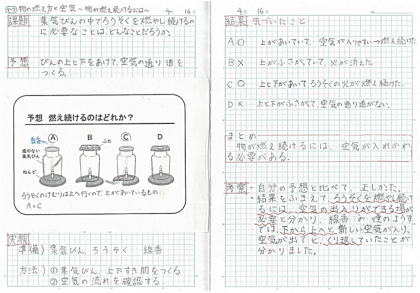 物の燃え方と空気〜物が燃え続けるには〜
課題
集気びんの中でろうそくを燃やし続けるの
に必要なことは、どんなことだろうか。
予想
びんの上と下をあけて、空気の通り道を
つくる。
予想 燃え続けるのはどれか?
A B C D
ふた
底のない
集気びん
ねんど
ろうそくのけむりは上へ行くので、上があいているもの
A、C
実験
準備) 集気びん ろうそく 線香
方法) ①集気びん、上下すき間をつくる
②空気の流れを確認する。
結果 気づいたこと
A○ 上があいていて、空気が入りやすい→燃え続けた
B× 上がふさがっていて、火が消えた
C○ 上と下があいてろうそくの火が燃え続けた。
D× 上と下がふさがって、空気の通り道がない。
まとめ
物が燃え続けるには、空気が入れかわ
る必要がある。
考察
・自分の予想と比べて、正しかった。
・結果をふまえて、ろうそくを燃やし続け
るには、空気の出入りができる場が
必要と分かり、線香の煙のようす
では、下から上へと新しい空気が入り、
空気が出てと、くり返していたことが
分かりました。